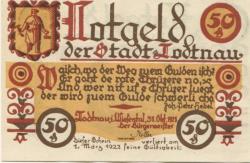 Notgeld
50
der Stadt Todtnau.
Waisch, wo der Weg zuem Gulden ischt
Er goht de rote Chrüzere no,
Und wer nit uf e Chrüzer luegt
der wird zuem Gulde schwerli cho
Todtnau i. Wiesental, 31. Okt. 1921
der Bürgermeister
50
50
Dieser Schein verliert am
1. März 1922 seine Gültigkeit.